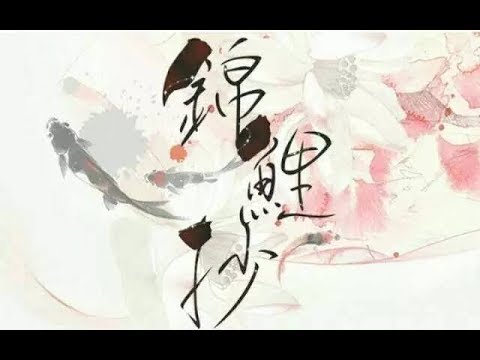 錦鯉抄